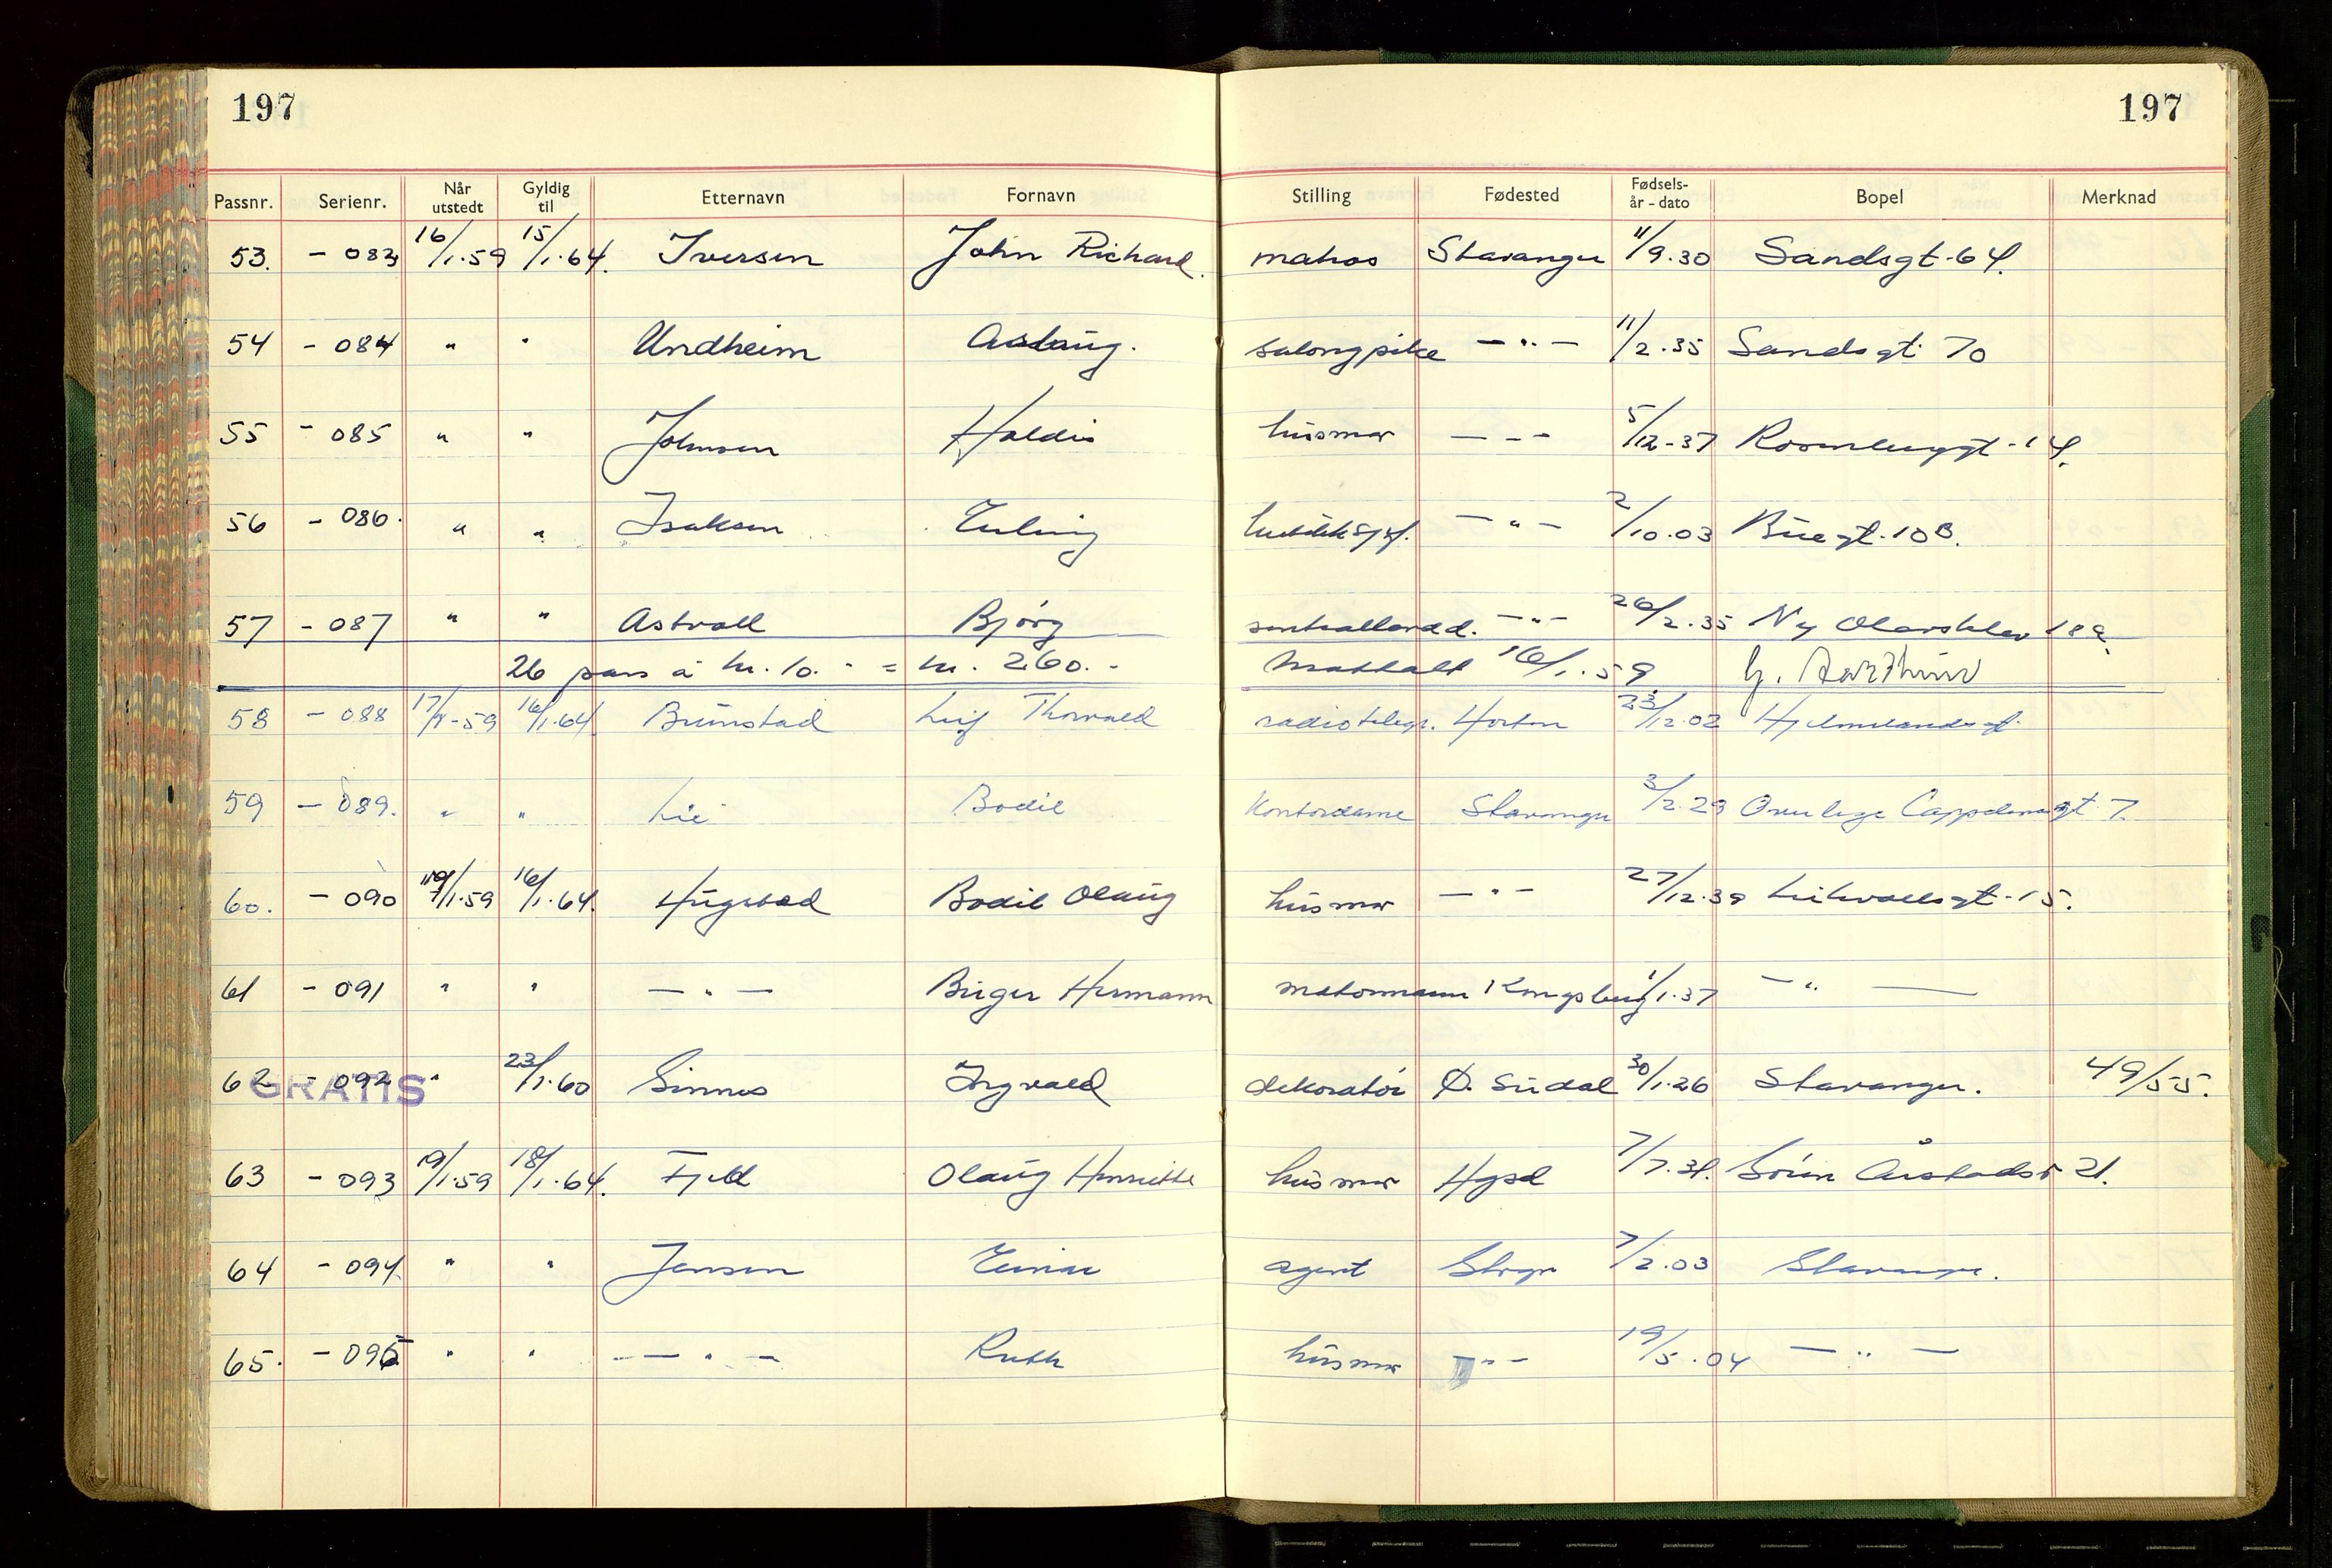 197 197
Passnr. Serienr. Når utstedt Gyldig til Etternavn Fornavn Stilling Fødested Fødsels-år - dato Bopel Merknad
53. - 083 16/1.59 15/1.64. Iversen John Richard. matros Stavanger 11/9.30 Sandsgt. 64.
54 - 084 " " Undheim Aslaug. salongpike - " - 11/2.35 Sandsgt. 70
55 - 085 " " Johnsen Haldis husmor - - - 5/12-37 Rosenberggt. 14.
56 - 086. " " Isaksen Erling - " - 2/10.03 Buegt. 10B.
57 - 087 " " Astvall Bjørg sentralbordd. - " - 26/2.35 Ny Olavskleiv 18a.
26 pass á kr. 10.- = kr. 260.- Mottatt 16/1.59
58 - 088 17/1-59 16/1.64. Brunstad Leif Thorvald radiotelegr. Horten 23/12.02 Hjelmelandsgt.
59 - 089. " " Lie Bodil Kontordame Stavanger 3/2.29 Overlege Cappelensgt 7.
60. - 090 19/1.59 16/1.64. Hugstad Bodil Olaug husmor - " - 27/12.39 Lilevollsgt. 15.
61 - 091 " " - " - Birger Hermann motormann Kongsberg 1/1.37 - " -
62 - 092 GRATIS " 23/1.60 Sinnes Ingvald dekoratør Ø. Sirdal 30/1.26 Stavanger. 49/55.
63 - 093 19/1.59 18/1.64. Fjeld Olaug Henriette husmor Hgsd 7/7.31. Sören Austadsv 21.
64 - 094. " " Jensen Einar agent Stvgr 7/2.03 Stavanger.
65. - 095 " " - " - Ruth husmor - " - 19/5.04 - " -